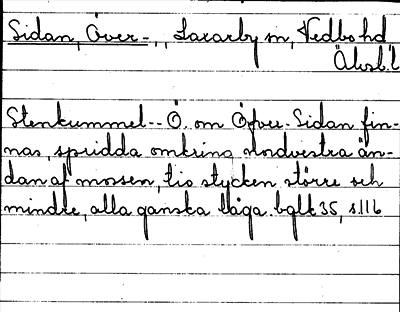 Sidan, Över-, Laxarby sn, Vedbo hd
Älvsb. l
Stenkummel-- Ö. om Öfver-Sidan fin-
nas, spridda omkring nordvestra än-
dan af mossen, tio stycken större och
mindre, alla ganska låga. bglt 35, s. 116